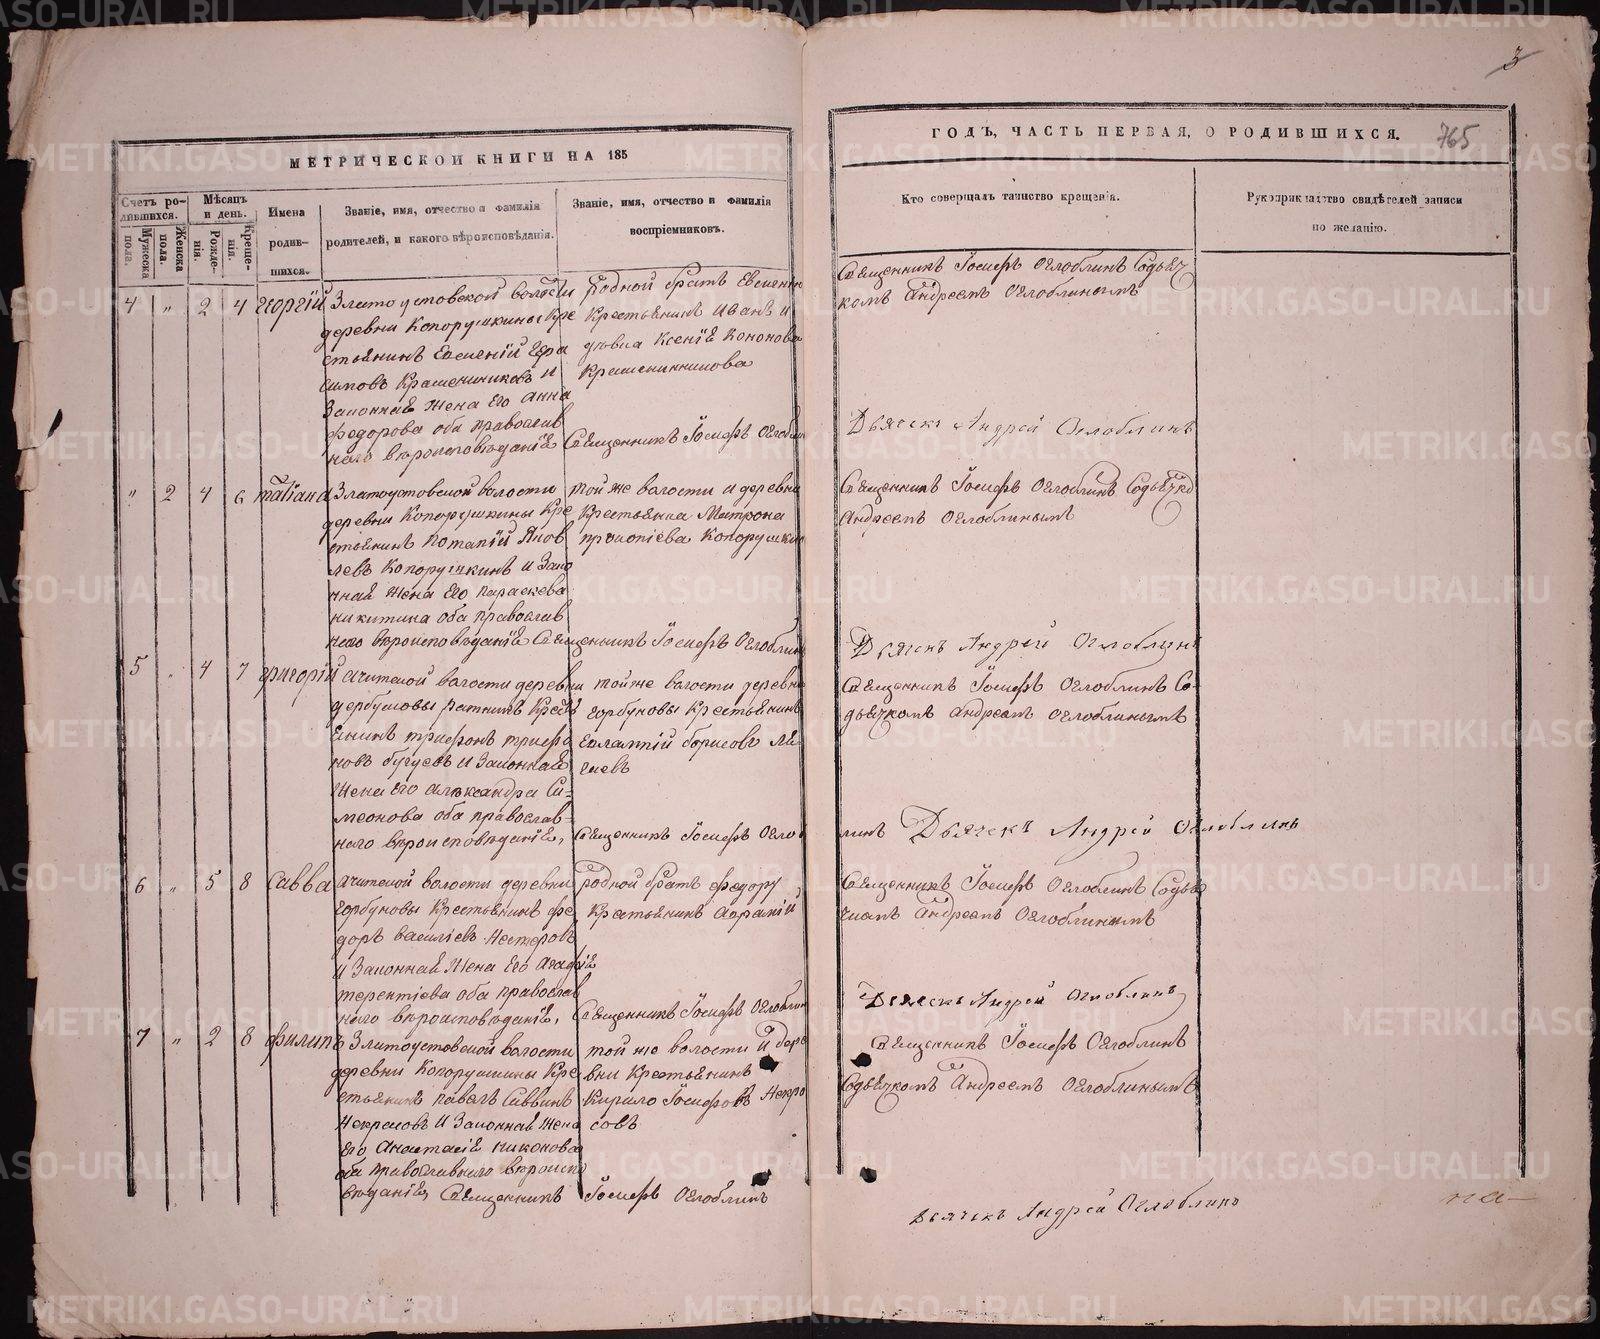 3
МЕТРИЧЕСКОЙ КНИГИ НА 185
ГОДЪ, ЧАСТЬ ПЕРВАЯ, О РОДИВШИХСЯ.
765
Счетъ ро-
дившихся.
Мѣсяцъ
и день.
Мужеска
пола.
Женска
пола.
Рожде-
нія.
Креще-
нія.
Имена
родив-
шихся.
Званіе, имя, отчество и фамилія
родителей, и какого вѣроисповѣданія.
Званіе, имя, отчество и фамилія
воспріемниковъ.
Кто совершалъ таинство крещенія.
Рукоприкладство свидѣтелей записи
по желанію.
4 " 2 4 Георгій
Златоустовской волости
деревни Копорушкины Кре
стьянинъ Евгеній Гера
симовъ Крашениниковъ и
Законная жена его Анна
Федорова оба православ
наго вѣроисповѣданія
Родной братъ Евгенію
Крестьянинъ Иванъ и
дѣвка Ксенія Кононова
Крашенинникова
Священникъ Іосифъ Оглоблин
Священникъ Іосифъ Оглоблинъ Содьяч
комъ Андреемъ Оглоблинымъ
Дьячекъ Андрей Оглоблинъ
" 2 4 6 Татіана
Златоустовской волости
деревни Копорушкины Кре
стьянинъ Потапій Яков
левъ Копорушкинъ и Зако
нная жена его Параскева
Никитина оба православ
наго вѣроисповѣданія Священникъ Іосифъ Оглоблин
той же волости и деревни
Крестьянка Матрона
Прокопіева Копорушкин
Священникъ Іосифъ Оглоблинъ Содьячко
Андреемъ Оглоблинымъ
Дьячекъ Андрей Оглоблинъ
5 " 4 7 Григорій
Ачитской волости деревни
Горбуновы ратникъ Кресть
янинъ Трифонъ Трифо
новъ Бугуевъ и Законная
жена его Александра Си-
меонова оба православ-
наго вѣроисповѣданія,
той же волости деревни
Горбуновы Крестьянинъ
Евлампій Борисовъ
Священникъ Іосифъ Огло
Священникъ Іосифъ Оглоблинъ Со-
дьячкомъ Андреемъ Оглоблинымъ
блинъ Дьячекъ Андрей Оглоблинъ
6 " 5 8 Савва
Ачитской волости деревни
Горбуновы Крестьянинъ Фе
доръ Василіевъ Нестеровъ
и Законная жена его Агафія
Терентіева оба православ
наго вѣроисповѣданія,
Родной братъ Федору
Крестьянинъ Авраамій
Священникъ Іосифъ Оглоблин
Священникъ Іосифъ Оглоблинъ Содья
чкомъ Андреемъ Оглоблинымъ
Дьячекъ Андрей Оглоблинъ
7 " 2 8 Филипъ
Златоустовской волости
деревни Копорушкины Кре
стьянинъ Павелъ Саввинъ
Некрасовъ и Законная жена
его Анастасія Никонова
оба православнаго вѣроиспо
вѣданія, Священникъ Іосифъ Оглоблинъ
той же волости и дере
вни Крестьянинъ
Кирило Іосифовъ Некра
совъ
Священникъ Іосифъ Оглоблинъ
Содьячкомъ Андреемъ Оглоблинымъ
Дьячекъ Андрей Оглоблинъ
на
METRIKI.GASO-URAL.RU